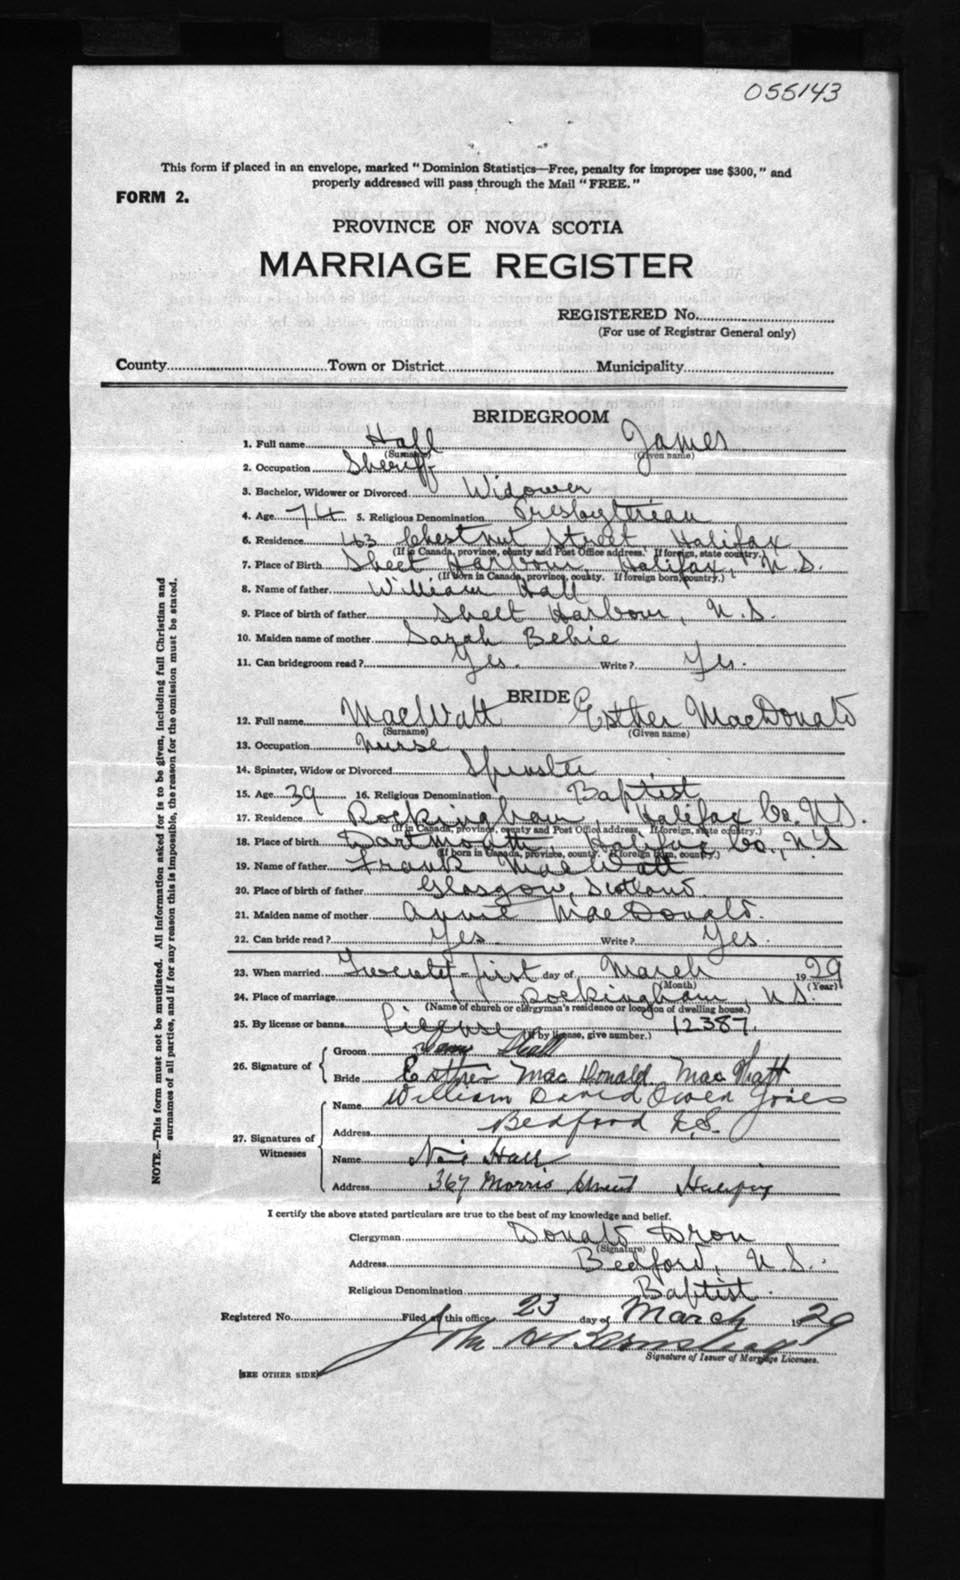 055143
This form if placed in an envelope, marked "Dominion Statistics—Free, penalty for improper use $300," and
properly addressed will pass through the Mail "FREE."
FORM 2.
PROVINCE OF NOVA SCOTIA
MARRIAGE REGISTER
REGISTERED No.
(For use of Registrar General only)
County Town or District Municipality
BRIDEGROOM
1. Full name Hall James
(Surname) (Given name)
2. Occupation Sheriff
3. Bachelor, Widower or Divorced Widower
4. Age 74 5. Religious Denomination Presbyterian
6. Residence 63 Chestnut Street, Halifax
(If in Canada, province, county and Post Office address. If foreign, state country.)
7. Place of Birth Sheet Harbour, Halifax, N.S.
(If born in Canada, province, county. If foreign born, country.)
8. Name of father William Hall
9. Place of birth of father Sheet Harbour, N.S.
10. Maiden name of mother Sarah
11. Can bridegroom read? Yes. Write? Yes.
BRIDE
12. Full name MacWatt Esther MacDonald
(Surname) (Given name)
13. Occupation Nurse
14. Spinster, Widow or Divorced Spinster
15. Age 39 16. Religious Denomination Baptist
17. Residence Rockingham, Halifax Co. N.S.
(If in Canada, province, county and Post Office address, If foreign, state country.)
18. Place of birth Dartmouth, Halifax Co., N.S
(If born in Canada, province, county. If foreign born, country.)
19. Name of father Frank MacWatt
20. Place of birth of father Glasgow, Scotland
21. Maiden name of mother Annie MacDonald.
22. Can bride read? Yes. Write? Yes.
23. When married Twenty-first day of March 1929
(Month) (Year)
24. Place of marriage Rockingham, N.S.
(Name of church or clergyman's residence or location of dwelling house.)
25. By license or banns License (If by license, give number.) 12387.
26. Signature of Groom Hall
Bride Esther MacDonald MacWatt
27. Signatures of Witnesses
Name William David Owen Jones
Address Bedford N.S.
Name Hall
Address 367 Morris Street Halifax
I certify the above stated particulars are true to the best of my knowledge and belief.
Clergyman Donald Dron
(Signature)
Address Bedford, N.S.
Religious Denomination Baptist.
Registered No. Filed at this office 23 day of March 1929
John
Signature of Issuer of Marriage Licenses.
[SEE OTHER SIDE]
NOTE.—This form must not be mutilated. All information asked for is to be given, including full Christian and
surnames of all parties, and if for any reason this is impossible, the reason for the omission must be stated.